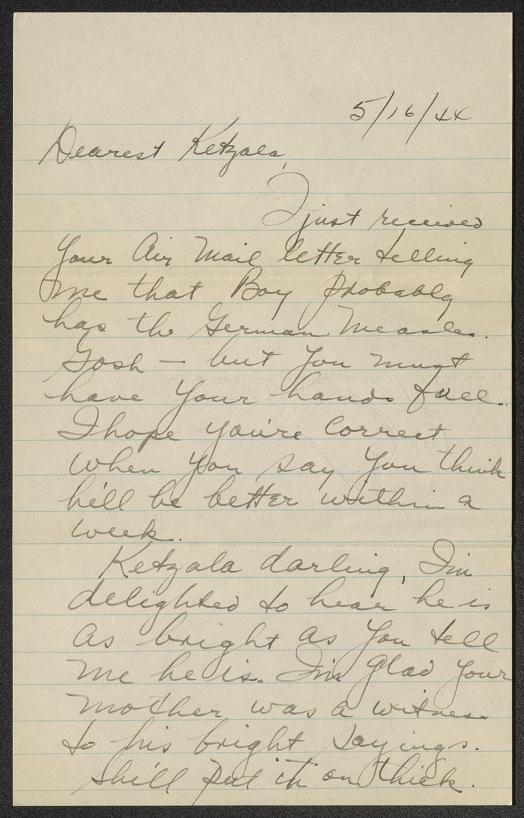 5/16/44
Dearest Ketzala,
I just received
Your Air Mail letter telling
me that Boy probably
has the German Measles.
Gosh — but you must
have your hands full.
I hope you're correct
when you say you think
he'll be better within a
week.
Ketzala darling, I'm
delighted to hear he is
as bright as you tell
me he is. I'm glad your
mother was a witness
to his bright sayings.
She'll put it on thick.